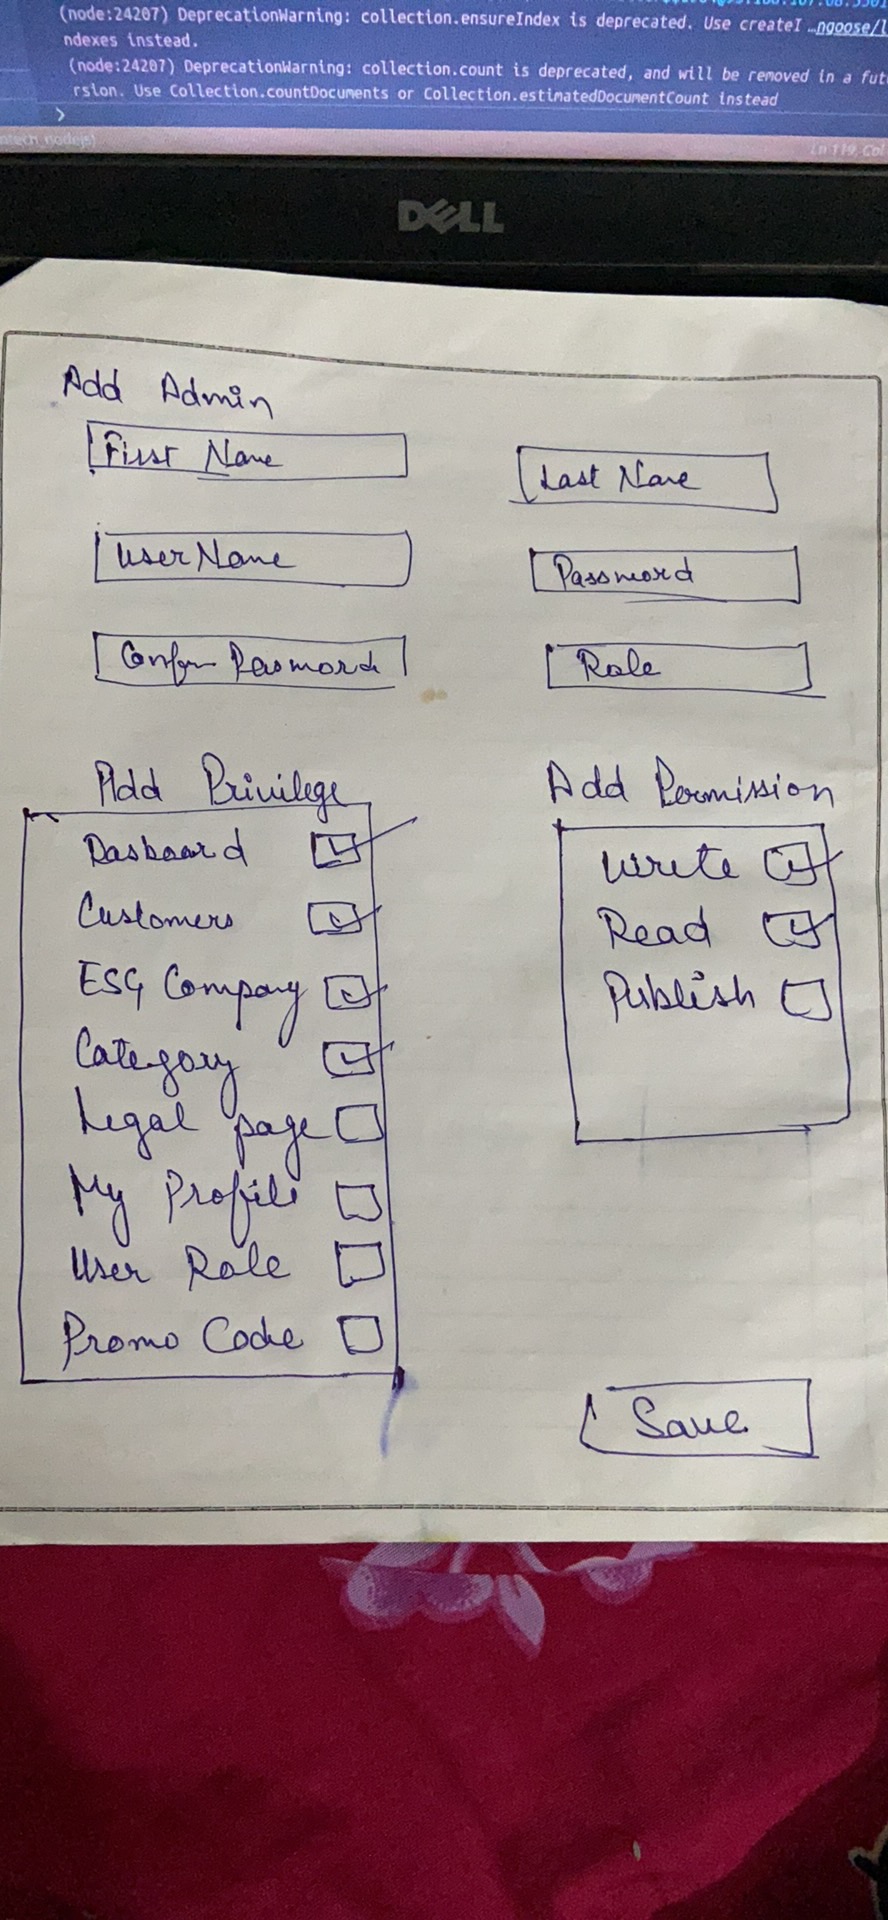 (node:24207) DeprecationWarning: collection.ensureIndex is deprecated. Use createI …ngoose/l
ndexes instead.
(node:24207) DeprecationWarning: collection.count is deprecated, and will be removed in a fut
rsion. Use Collection.countDocuments or Collection.estimatedDocumentCount instead
❯
Ln 119, Col
DELL
Add Admin
First Name
Last Name
User Name
Password
Confm Password
Role
Add Privilege
Add Permission
Dasboard
Write
Customers
Read
ESG Company
Publish
Category
Legal page
My Profile
User Role
Promo Code
Save